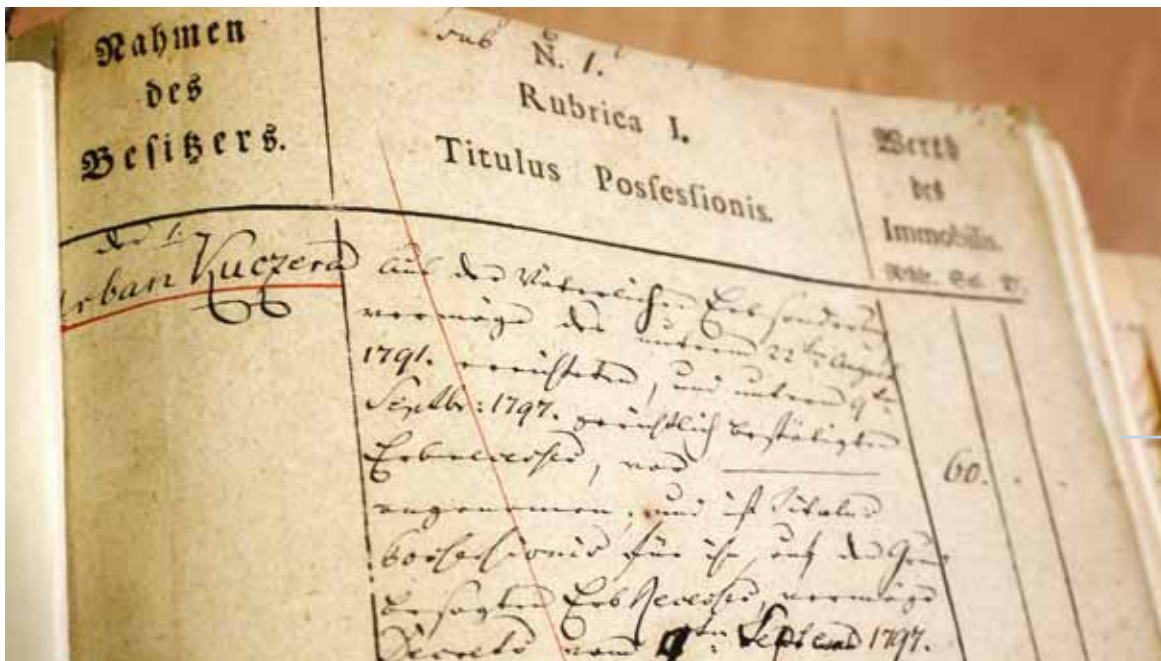 Nahmen
des
Besitzers.
sub N. 1.
Rubrica I.
Titulus Possessionis.
Werth
des
Immobilis.
Rthlr.
der 1.
Urban Kuczera
aus der Väterlichen Erbsonderung
vermöge des unterm 22ten August
1791. errichteten, und unterm 9ten
Septbr: 1797. gerichtlich bestätigten
Erbrecesses, vor
60.
angenommen, und ist Titulus
possessionis für ihn auf den Grund
besagten Erb Recesses, vermöge
Decrets vom 9ten Septemb 1797.